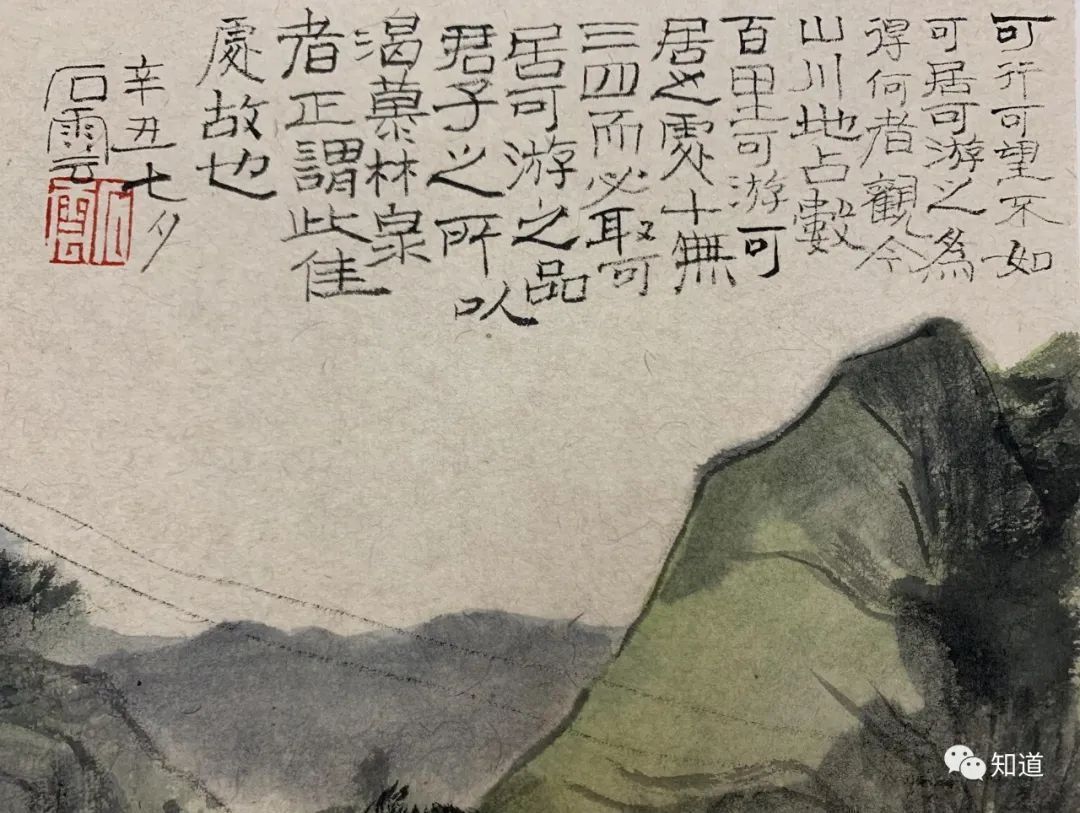 可行可望不如
可居可游之為
得何者觀今
山川地占數
百里可游可
居之處十無
三四而必取可
居可游之品
君子之所以
渴慕林泉
者正謂此佳
處故也
辛丑七夕
石雲
知道